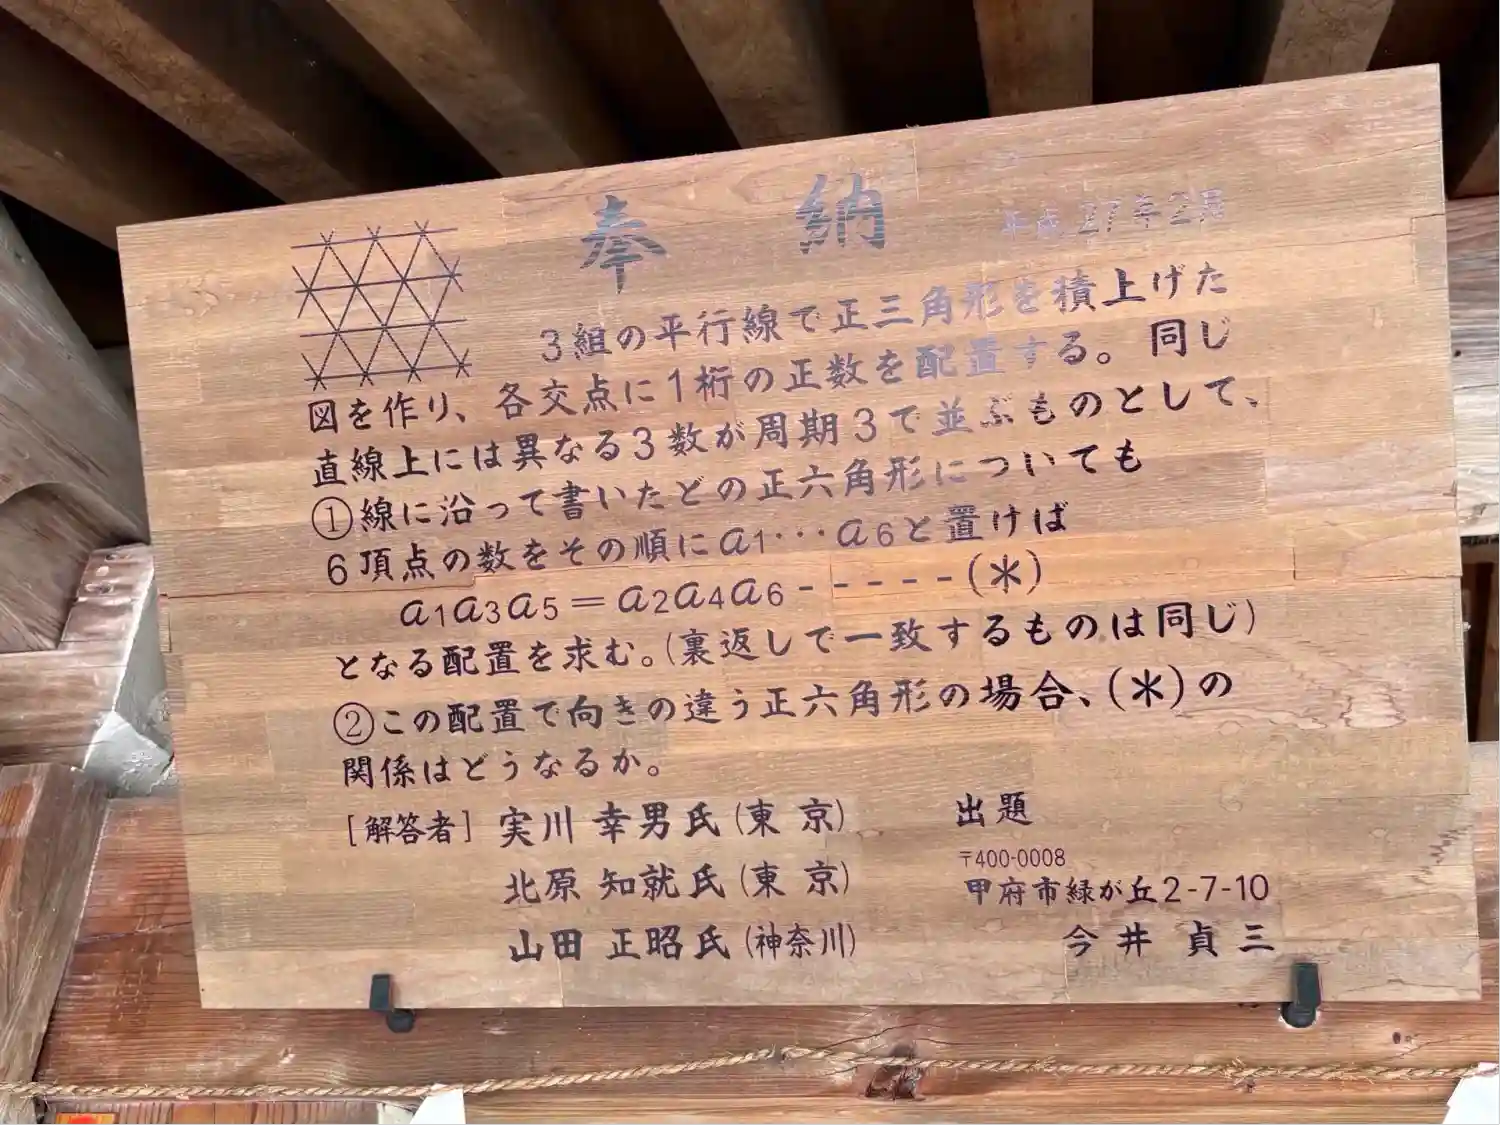 奉納
平成27年2月
3組の平行線で正三角形を積上げた
図を作り、各交点に1桁の正数を配置する。同じ
直線上には異なる3数が周期3で並ぶものとして、
①線に沿って書いたどの正六角形についても
6頂点の数をその順にa1･･･a6と置けば
a1a3a5=a2a4a6-----(＊)
となる配置を求む。(裏返しで一致するものは同じ)
②この配置で向きの違う正六角形の場合、(＊)の
関係はどうなるか。
[解答者] 実川 幸男氏(東 京)
北原 知就氏(東 京)
山田 正昭氏(神奈川)
出題
〒400-0008
甲府市緑が丘2-7-10
今井 貞三